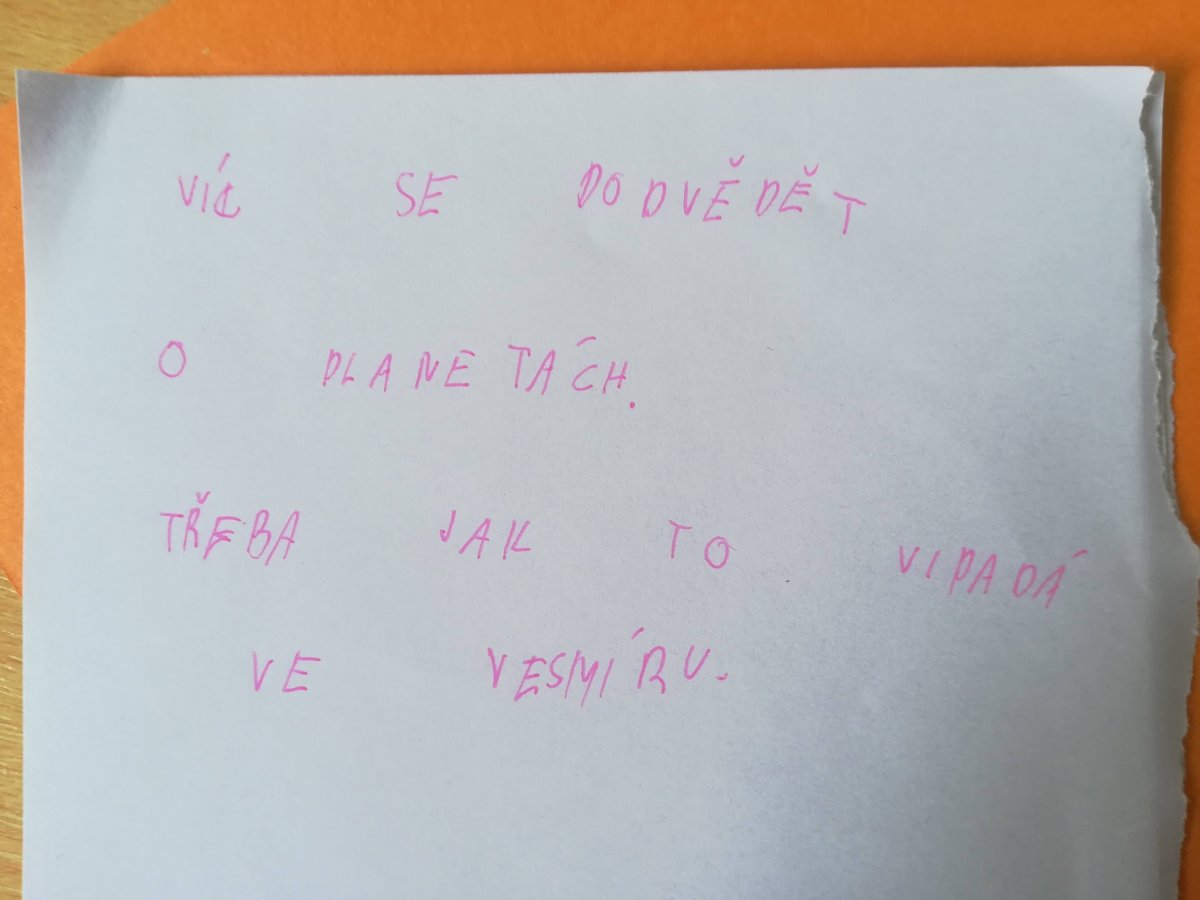 VÍC SE DODVĚDĚT
O PLANETÁCH.
TŘEBA JAK TO VIPADÁ
VE VESMÍRU.